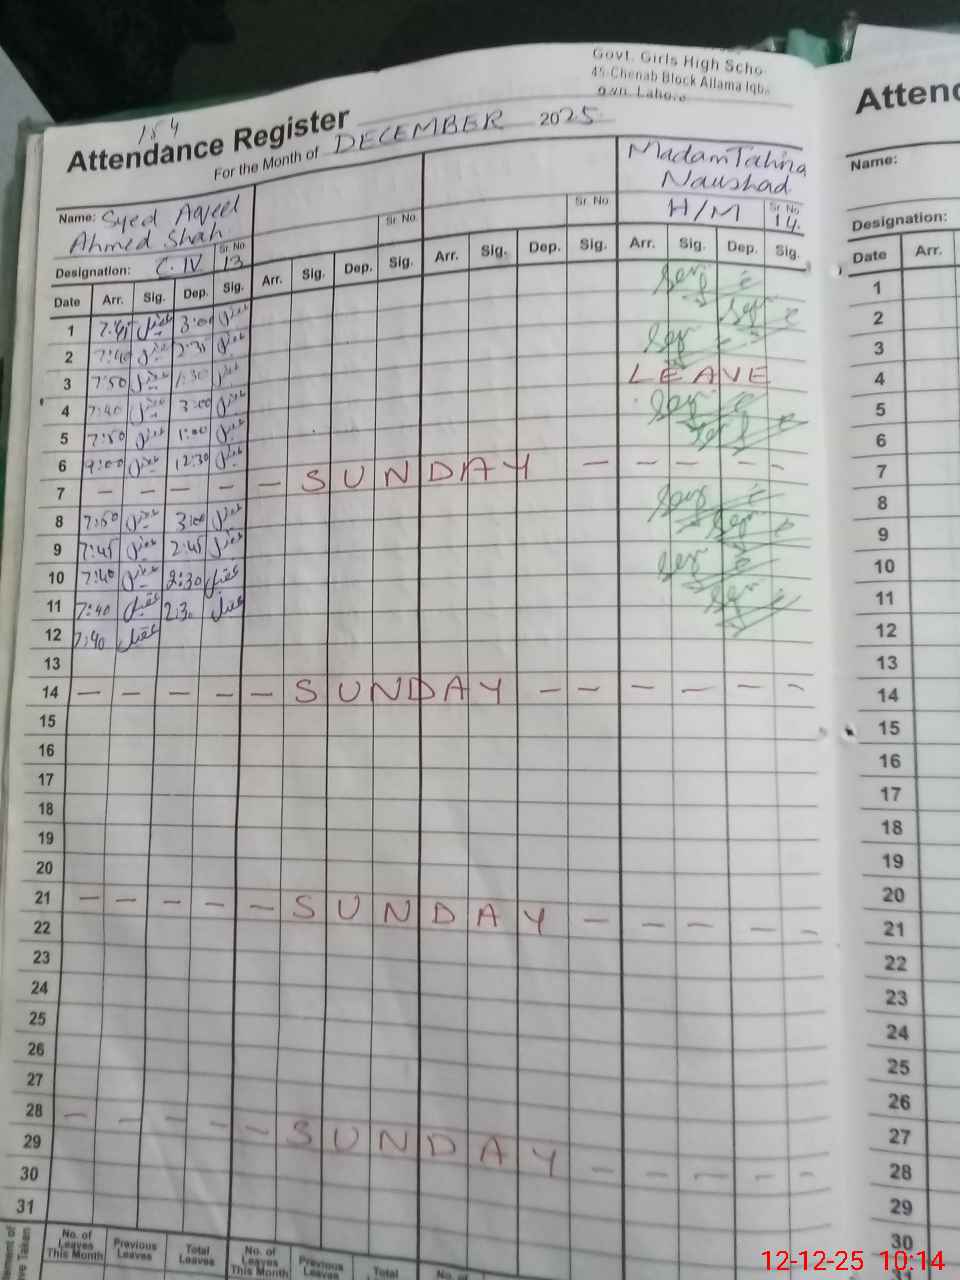 Govt. Girls High Scho
45-Chenab Block Allama Iqb
own. Lahore
154
Attendance Register
For the Month of DECEMBER 2025
Name: Syed Aqeel Ahmed Shah
Designation: C.IV Sr. No 13
Sr. No.
Sr. No
Madam Tahira Naushad
H/M Sr. No 14.
Date Arr. Sig. Dep. Sig. Arr. Sig. Dep. Sig. Arr. Sig. Dep. Sig. Arr. Sig. Dep. Sig.
1 7:45 عقیل 3:00 عقیل
2 7:40 عقیل 2:30 عقیل
3 7:50 عقیل 1:30 عقیل
4 7:40 عقیل 3:00 عقیل LEAVE
5 7:50 عقیل 1:00 عقیل
6 9:00 عقیل 12:30 عقیل
7 - - - - - SUNDAY - - - - -
8 7:50 عقیل 3:00 عقیل
9 7:45 عقیل 2:45 عقیل
10 7:40 عقیل 2:30 عقیل
11 7:40 عقیل 2:30 عقیل
12 7:40 عقیل
13
14 - - - - - SUNDAY - - - - - -
15
16
17
18
19
20
21 - - - - - SUNDAY - - - - -
22
23
24
25
26
27
28 - - - - - SUNDAY - - - - -
29
30
31
No. of Leaves This Month Previous Leaves Total Leaves No. of Leaves This Month Previous Leaves Total No. of
Atten
Name:
Designation:
Date Arr.
1
2
3
4
5
6
7
8
9
10
11
12
13
14
15
16
17
18
19
20
21
22
23
24
25
26
27
28
29
30
12-12-25 10:14